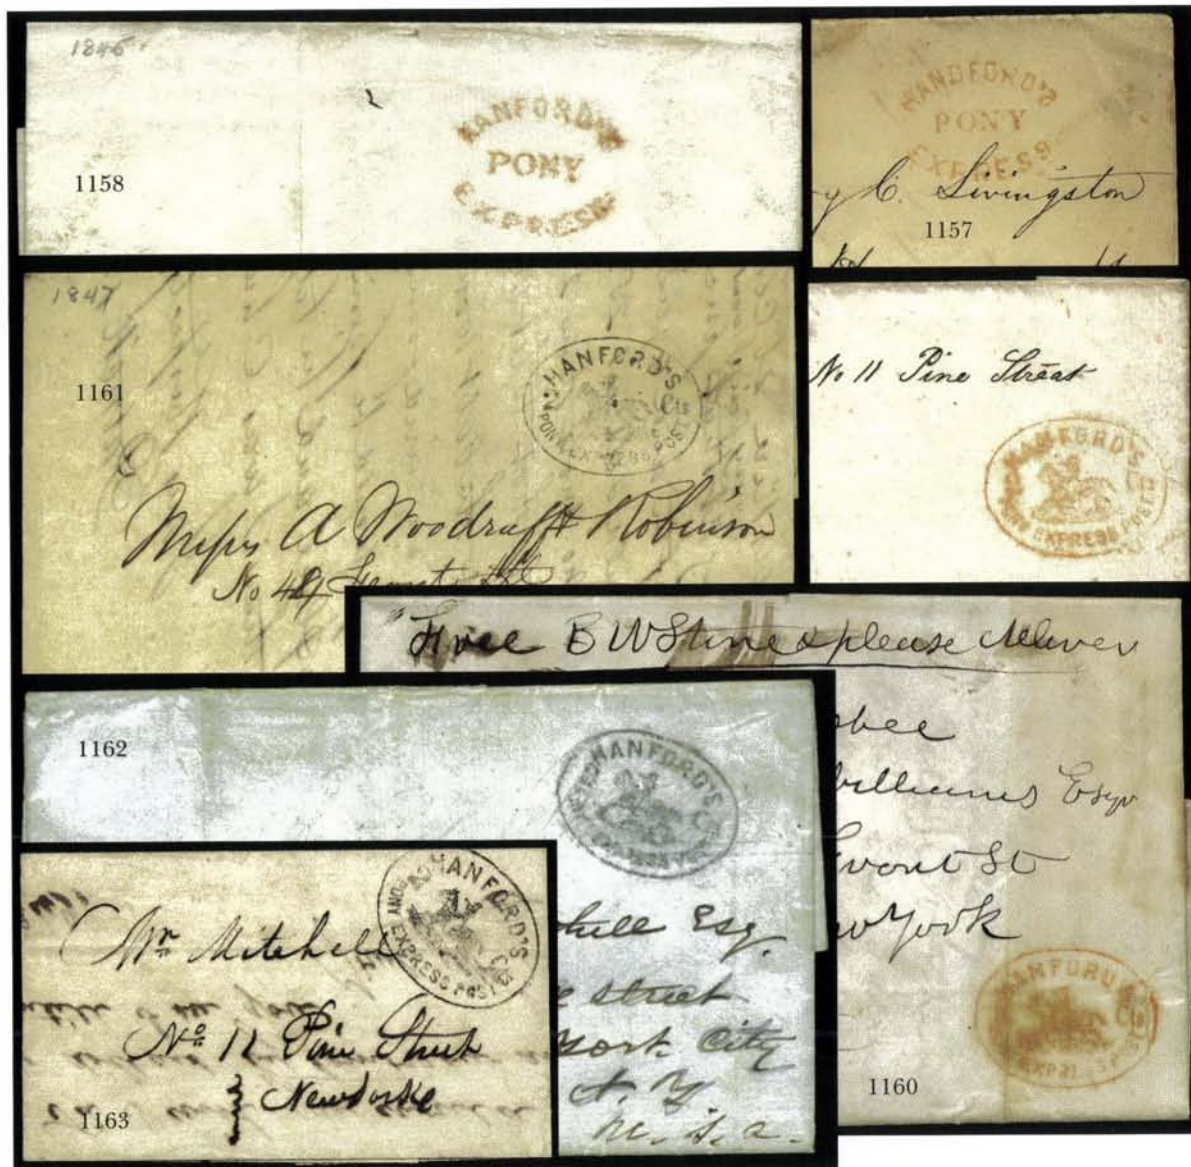 1846
HANFORD'S
PONY
EXPRESS
1158
HANDFORD'S
PONY
EXPRESS
y C. Livingston
1157
1847
1161
HANFORD'S
Cts
PONY EXPRESS POST
Messrs A Woodruff & Robinson
No
No 11 Pine Street
HANFORD'S
PONY EXPRESS POST
Free B W & please deliver
bee
Williams Esqr
Front St
w York
HANFORD'S
Cts
EXPRESS POST
1160
1162
HANFORD'S
EXPRESS POST
hell Esq.
e street
York City
N. Y
U. S. a.
HANFORD'S
EXPRESS POST
Mr Mitchell
No 11 Pine Street
New Yorke
1163